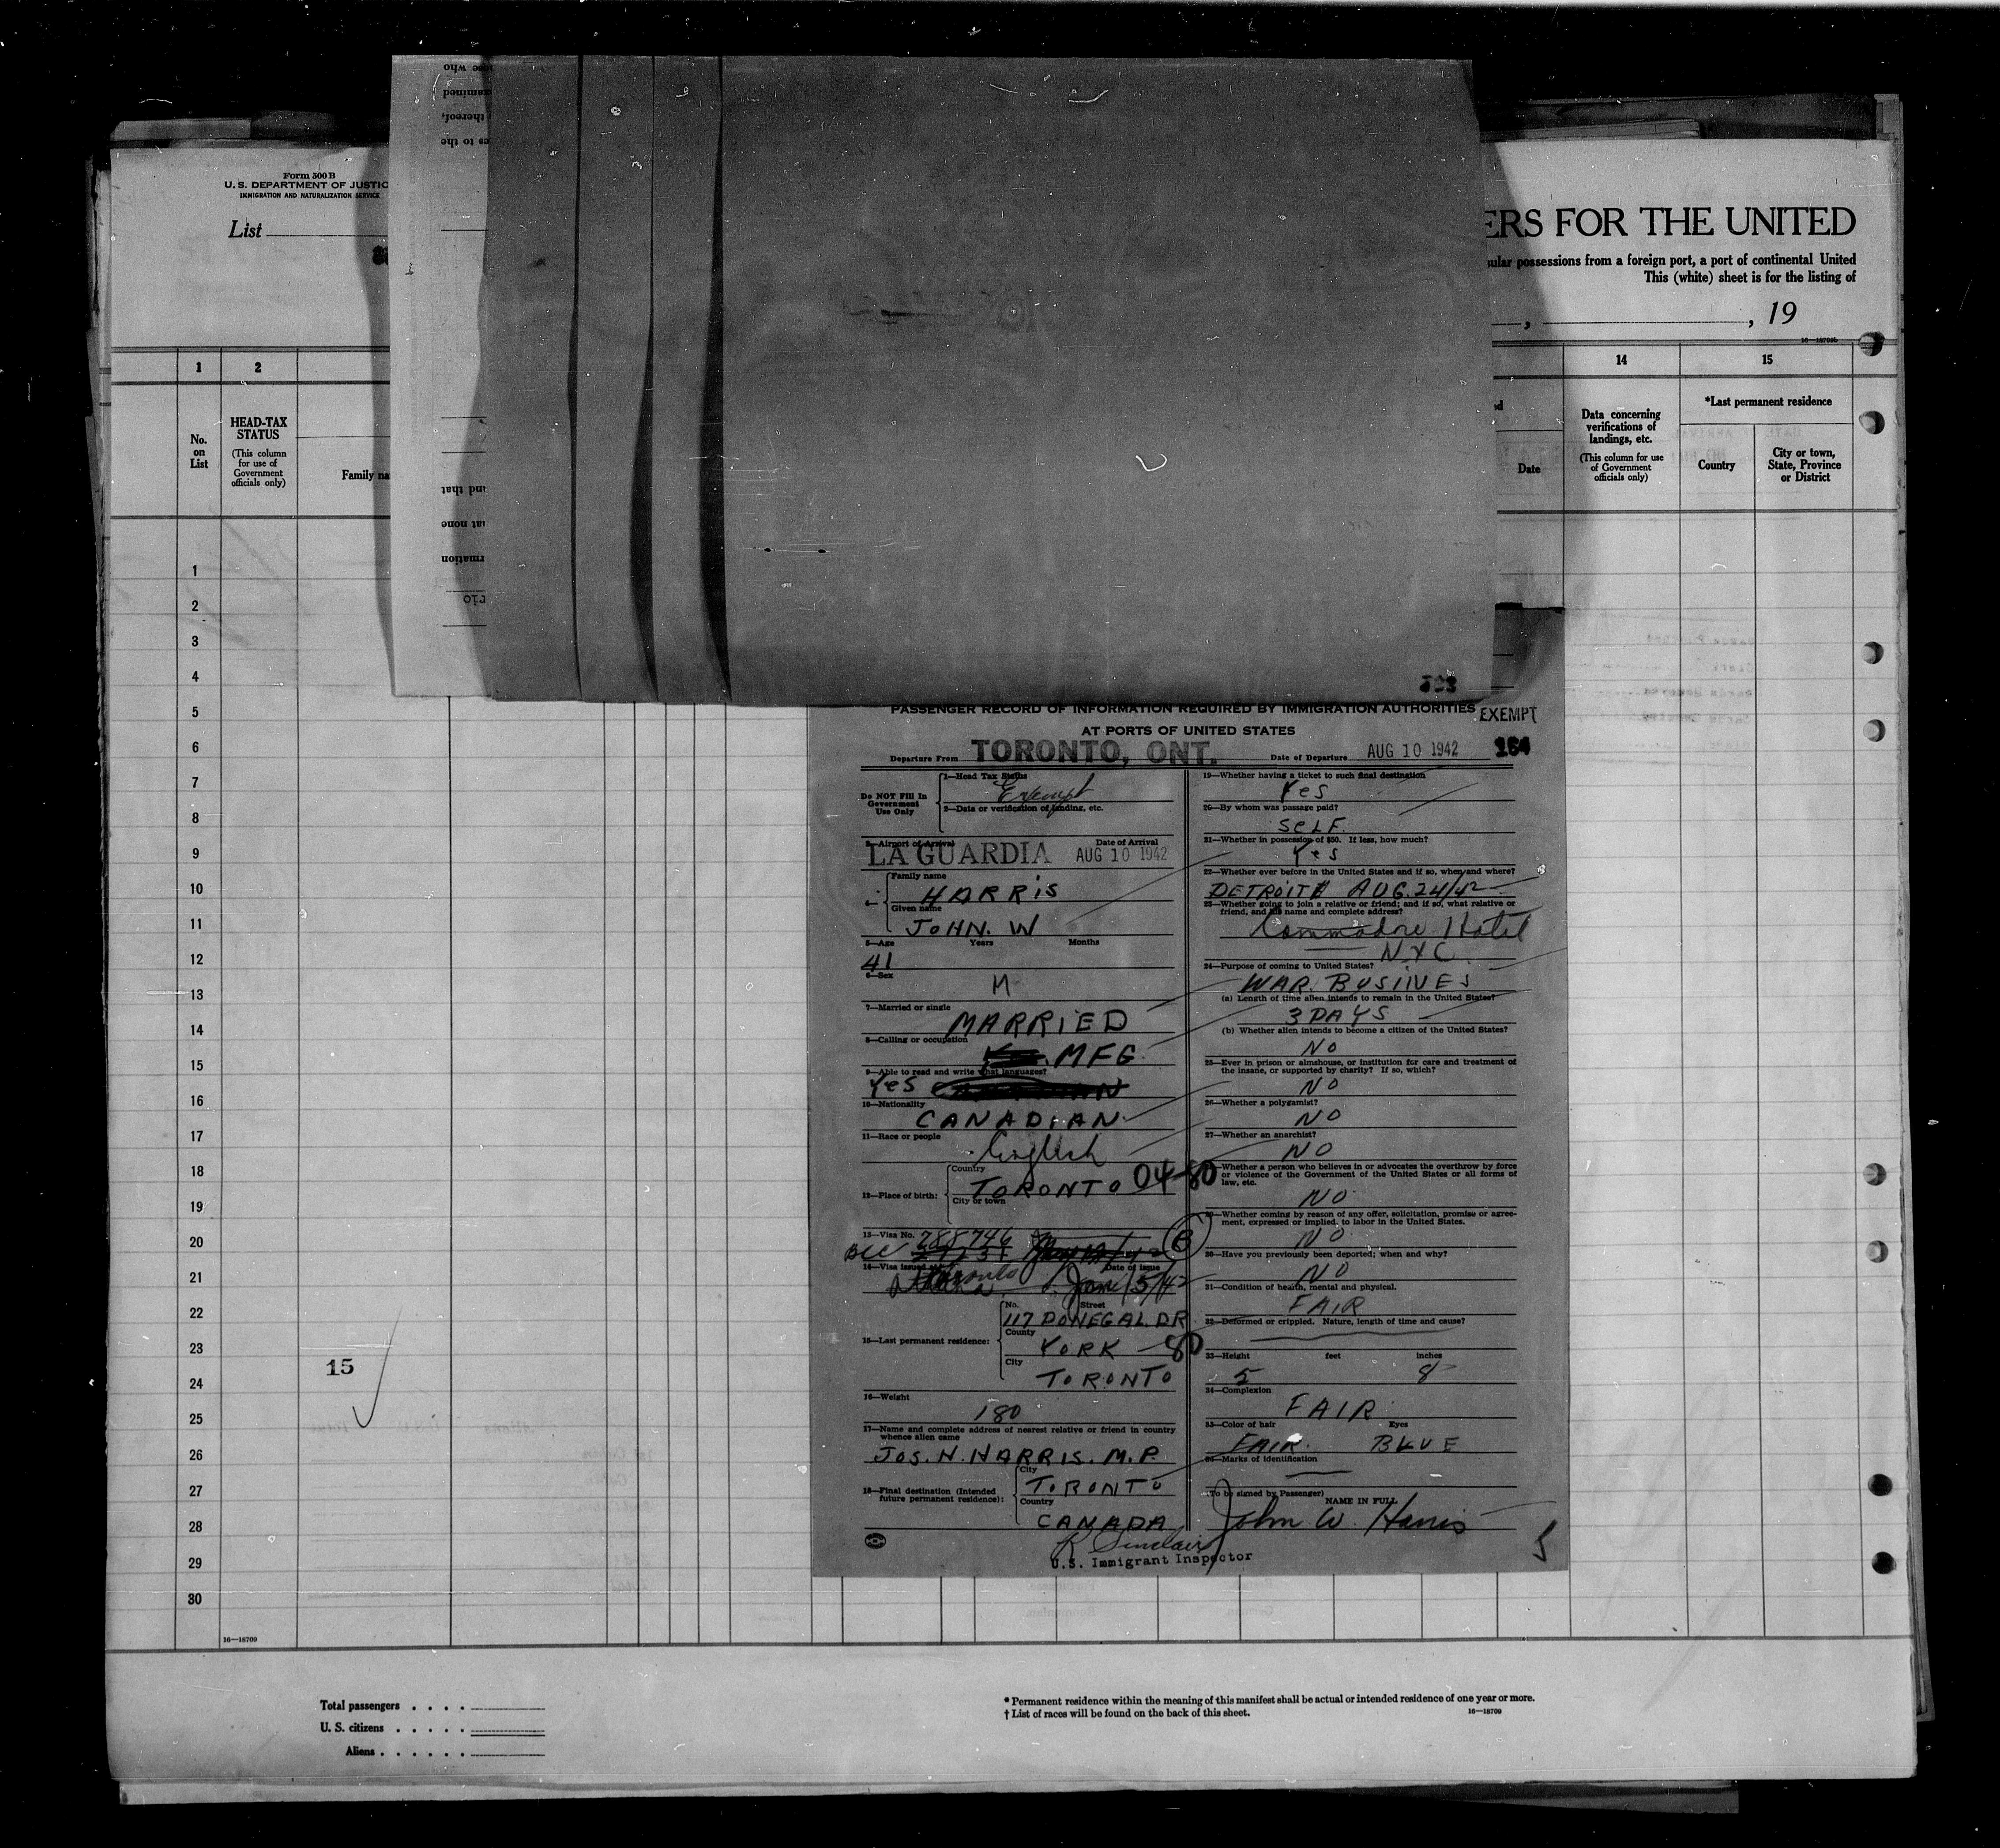 Form 500 B
U. S. DEPARTMENT OF JUSTIC
IMMIGRATION AND NATURALIZATION SERVICE
List
ose who
examined
thereof,
es to the
and that
at none
rmation
rio
ERS FOR THE UNITED
sular possessions from a foreign port, a port of continental United
This (white) sheet is for the listing of
, , 19
1 2 14 15
No. on List
HEAD-TAX STATUS
(This column for use of Government officials only)
Family na
Date
Data concerning verifications of landings, etc.
(This column for use of Government officials only)
*Last permanent residence
Country
City or town, State, Province or District
1
2
3
4
5
6
7
8
9
10
11
12
13
14
15
16
17
18
19
20
21
22
23
24
25
26
27
28
29
30
15
16—18709
PASSENGER RECORD OF INFORMATION REQUIRED BY IMMIGRATION AUTHORITIES
EXEMPT
AT PORTS OF UNITED STATES
Departure From TORONTO, ONT. Date of Departure AUG 10 1942 164
Do NOT Fill In Government Use Only
1—Head Tax Status
Exempt
2—Data or verification of landing, etc.
3—Airport of Arrival Date of Arrival
LA GUARDIA AUG 10 1942
Family name
HARRIS
Given name
JOHN. W
5—Age Years Months
41
6—Sex
M
7—Married or single
MARRIED
8—Calling or occupation
MFG
9—Able to read and write what languages?
Yes
10—Nationality
CANADIAN
11—Race or people
English
12—Place of birth:
Country
TORONTO 04-80
City or town
13—Visa No. 788746
B
14—Visa issued at Date of issue
Toronto June 15/42
15—Last permanent residence:
No. Street
117 DONEGAL DR
County
YORK - 80
City
TORONTO
16—Weight
180
17—Name and complete address of nearest relative or friend in country
whence alien came
JOS. H. HARRIS. M.P.
18—Final destination (Intended
future permanent residence):
City
TORONTO
Country
CANADA
R Sinclair
U.S. Immigrant Inspector
19—Whether having a ticket to such final destination
Yes
20—By whom was passage paid?
SELF.
21—Whether in possession of $50. If less, how much?
Yes
22—Whether ever before in the United States and if so, when and where?
DETROIT AUG. 24/42
23—Whether going to join a relative or friend; and if so, what relative or
friend, and his name and complete address?
Commodore Hotel
NYC.
24—Purpose of coming to United States?
WAR. BUSINES
(a) Length of time alien intends to remain in the United States?
3 DAYS
(b) Whether alien intends to become a citizen of the United States?
NO
25—Ever in prison or almshouse, or institution for care and treatment of
the insane, or supported by charity? If so, which?
NO
26—Whether a polygamist?
NO
27—Whether an anarchist?
NO
Whether a person who believes in or advocates the overthrow by force
or violence of the Government of the United States or all forms of
law, etc.
NO
29—Whether coming by reason of any offer, solicitation, promise or agree-
ment, expressed or implied, to labor in the United States.
NO
30—Have you previously been deported; when and why?
NO
31—Condition of health, mental and physical.
FAIR
32—Deformed or crippled. Nature, length of time and cause?
33—Height feet inches
5 8
34—Complexion
FAIR
35—Color of hair Eyes
FAIR. BLUE
36—Marks of identification
(To be signed by Passenger)
NAME IN FULL
John W. Harris
Total passengers . . . .
U. S. citizens . . . . .
Aliens . . . . . .
* Permanent residence within the meaning of this manifest shall be actual or intended residence of one year or more.
† List of races will be found on the back of this sheet.
16—18709